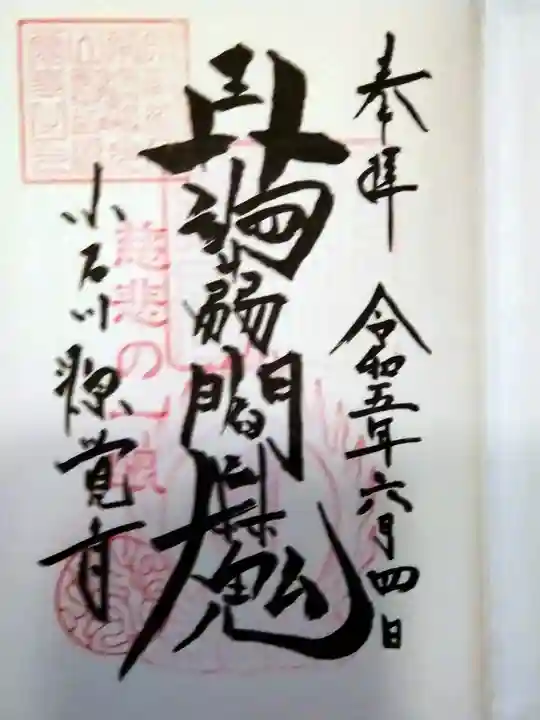 奉拝　令和五年六月四日
蒟蒻閻魔
慈悲の一眼
小石川源覚寺